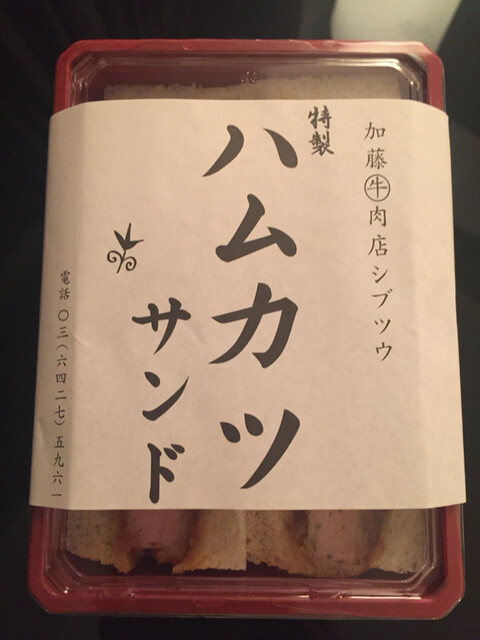 加藤㊥肉店シブツウ
特製
ハムカツ
サンド
電話 〇三(六四二七)五九六一